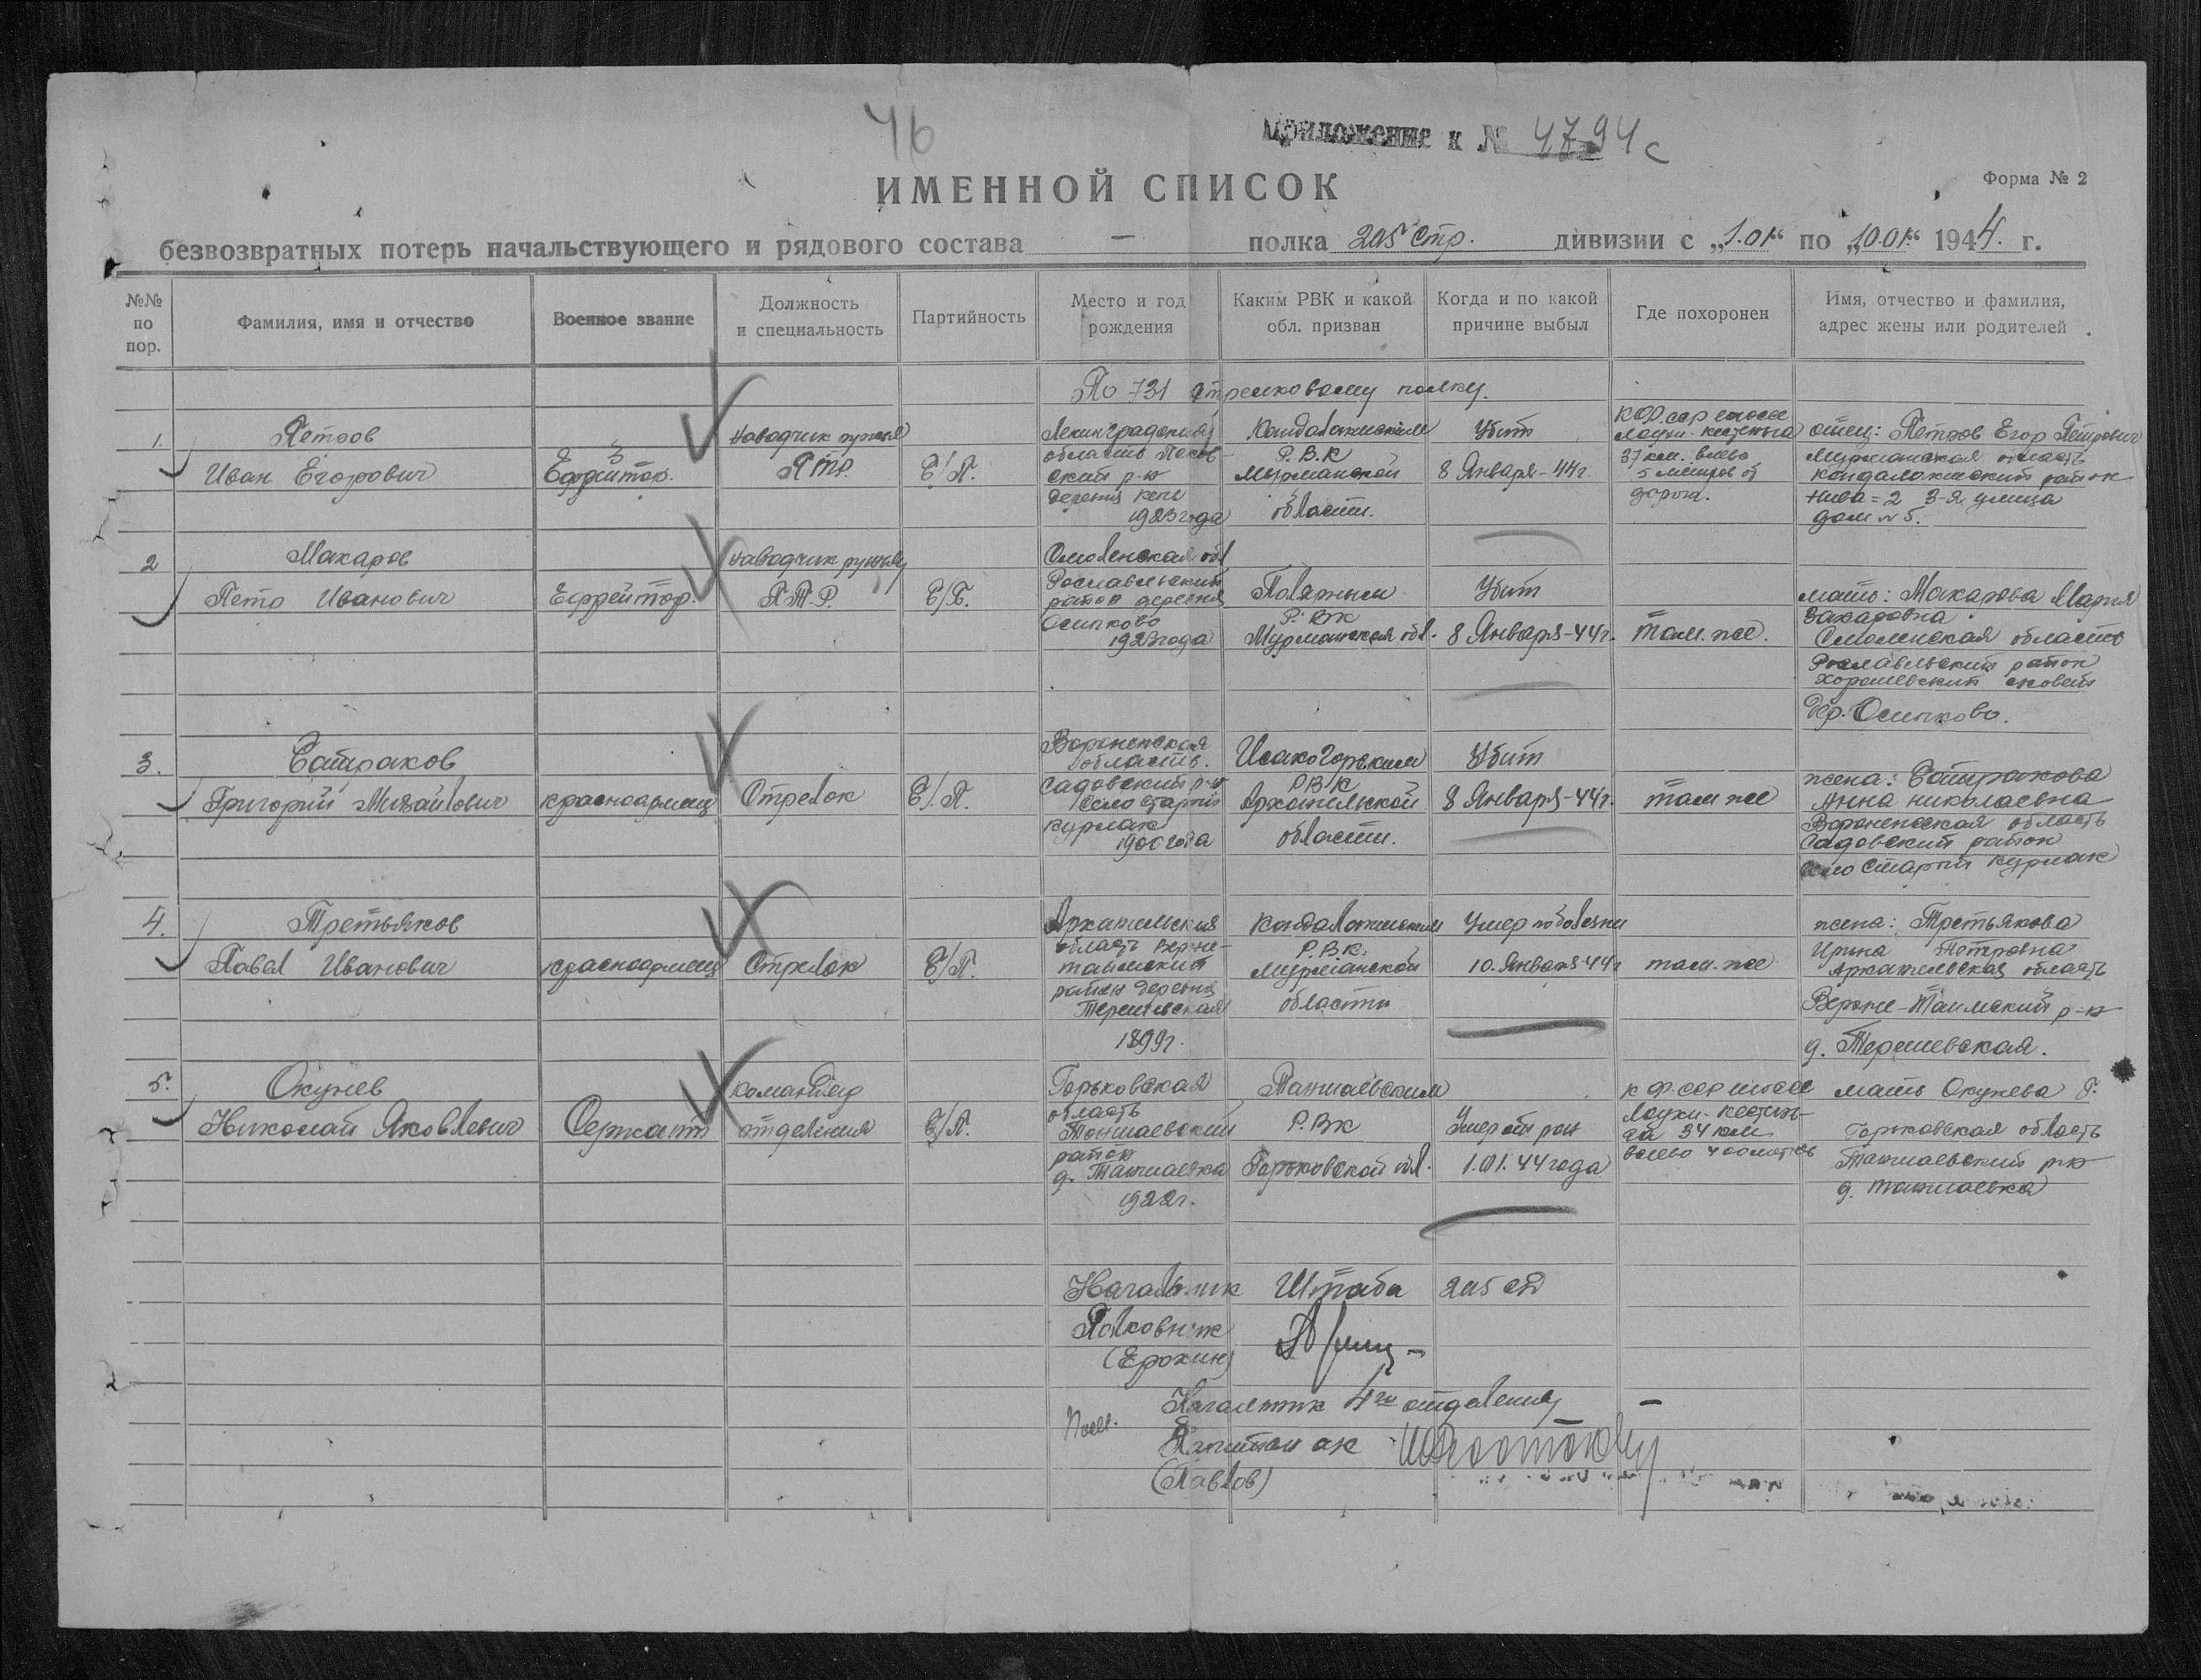 46
Приложение к № 4794с
ИМЕННОЙ СПИСОК
Форма № 2
безвозвратных потерь начальствующего и рядового состава — полка 205 стр. дивизии с „1.01“ по „10.01“ 1944. г.
№№ по пор.
Фамилия, имя и отчество
Военное звание
Должность и специальность
Партийность
Место и год рождения
Каким РВК и какой обл. призван
Когда и по какой причине выбыл
Где похоронен
Имя, отчество и фамилия, адрес жены или родителей
По 731 стрелковому полку.
1.
Петров
Иван Егорович
Ефрейтор.
наводчик ружья
ПТР.
Б/П.
Ленинградский
область Псков-
ский р-н
деревня
1923 года
Кандалакшским
Р.В.К
Мурманской
области.
Убит
8 Января-44г.
К.Ф.сср шоссе
Лоухи-Кестеньга
37 км. влево
5 метров от
дорога.
отец: Петров Егор Петрович
Мурманская область
Кандалакшский район
Нива-2 3-я улица
дом № 5.
2
Макаров
Петр Иванович
Ефрейтор.
наводчик ружья
П.Т.Р.
Б/П.
Смоленская обл
Рославльский
район деревня
Осипково
1923 года
Полярным
Р.ВК
Мурманская обл.
Убит
8 Января-44г.
там же.
мать: Макарова Мария
Захаровна
Смоленская область
Рославльский район
Хорошевский совет
Дер. Осипково.
3.
Батраков
Григорий Михайлович
красноармеец
Стрелок
Б/П.
Воронежская
область.
Садовский р-н
Село Старый
Курлак
1900 года
Исакогорским
Р.В/К
Архангельской
области.
Убит
8 Января-44г.
там же
жена: Батракова
Анна Николаевна
Воронежская область
Садовский район
Село Старый Курлак
4.
Третьяков
Павел Иванович
красноармеец
Стрелок
Б/П.
Архангельская
область Верхне-
тоимский
район деревня
1899г.
Кандалакшским
Р.В.К.
Мурманской
области
Умер по болезни
10. Января-44г
там же
жена: Третьякова
Ирина Петровна
Архангельская область
Верхне-Тоимский р-н
5.
Окунев
Николай Яковлевич
Сержант
командир
отделения
Б/П.
Горьковская
область
Тоншаевский
район
1922г.
Тоншаевским
Р.ВК
Горьковской обл.
Умер от ран
1.01.44 года
К.Ф.сср шоссе
Лоухи-Кестень-
га 34 км
влево 400 метров
мать Окунева
Горьковская область
Тоншаевский р-н
Начальник Штаба 205 сд
Полковник
(Ерохин)
Начальник 4го отделения
Капитан ак
(Павлов)